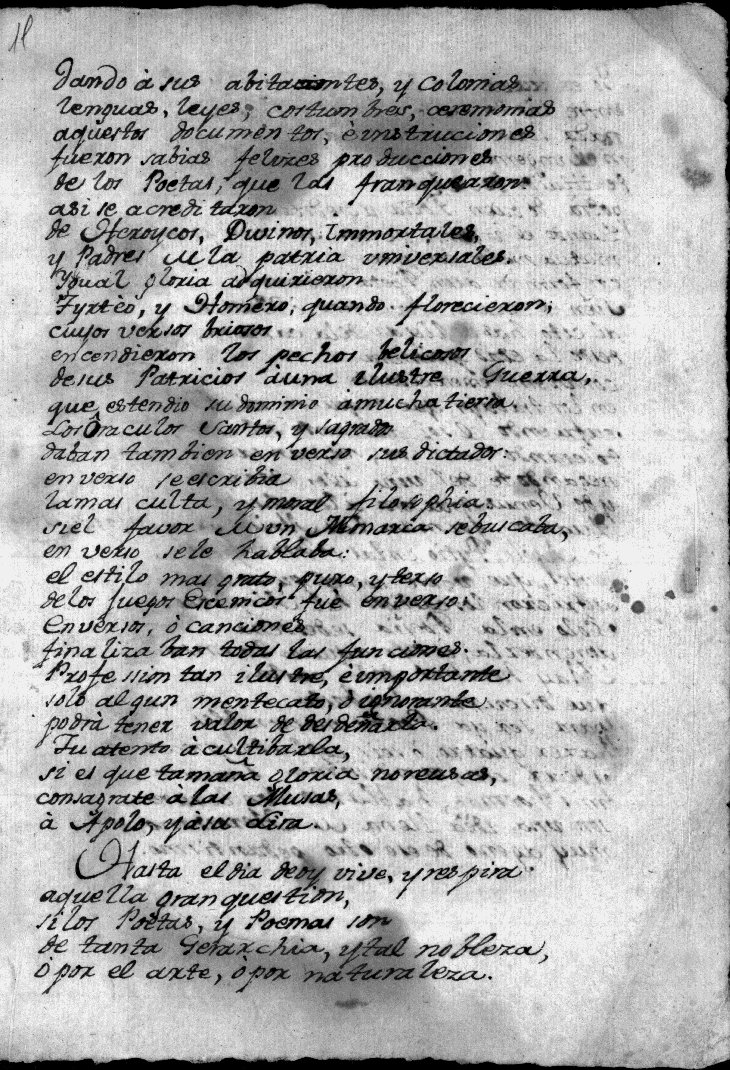 11
dando à sus abitantes, y Colonias
lenguas, leyes, costumbres, ceremonias
aquestos documentos, è instruciones
fueron sabias felizes producciones
de los Poetas, que las franquearon
asi se acreditaron
de Heroycos, Divinos, Immortales,
y Padres de la patria vniversales.
Ygual gloria adquirieron
Tyrtèo, y Homero, quando florecieron;
cuyos versos briosos
encendieron los pechos belicosos
desus Patricios àuna ilustre Guerra,
que estendio sudominio àmucha tierra
Los Oraculos santos, y sagrados
daban tambien en verso sus dictados:
en verso seescribia
lamas culta, y moral filosophia:
siel favor de vn Monarca sebuscaba,
en verso sele hablaba:
el estilo mas grato, puro, y terso
delos juegos Escenicos fuè enverso.
Enversos, ò canciones
finalizaban todas las funciones.
Profession tan ilustre, è importante
solo algun mentecato, ò ignorante
podrà tener valor de desdeñarla.
Tu atento à cultibarla,
si es que tamaña gloria noreusas,
consagrate à las Musas,
à Apolo, yàsu Lira.
Hasta eldia deoy vive, y respira
aquella granquestion,
silos Poetas, y Poemas son
de tanta Gerarchia, ytal nobleza,
ò por el arte, ò por naturaleza.